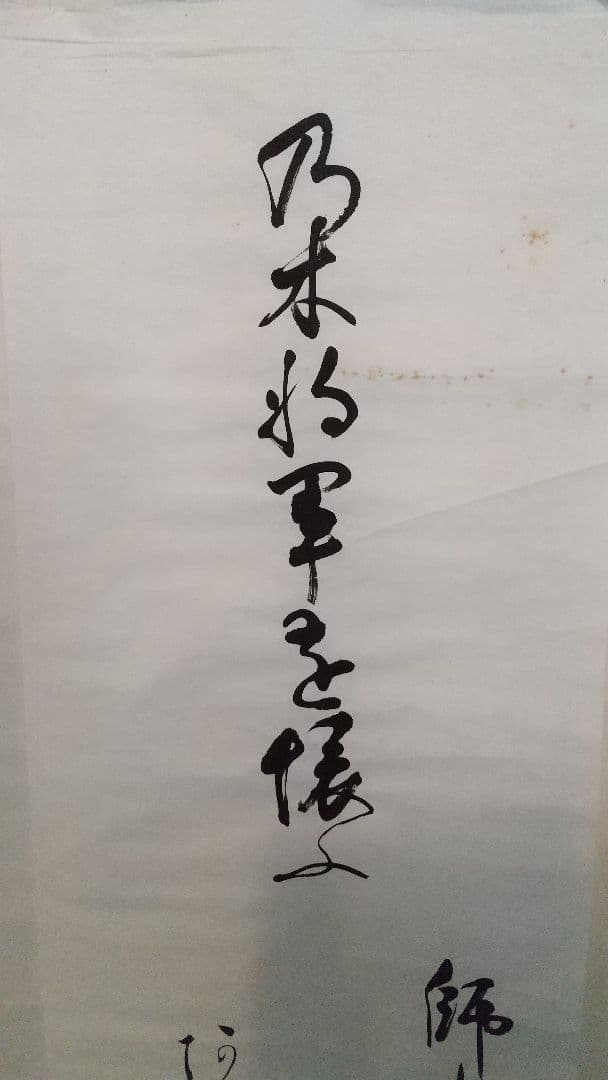 師
乃木将軍を懐ふ